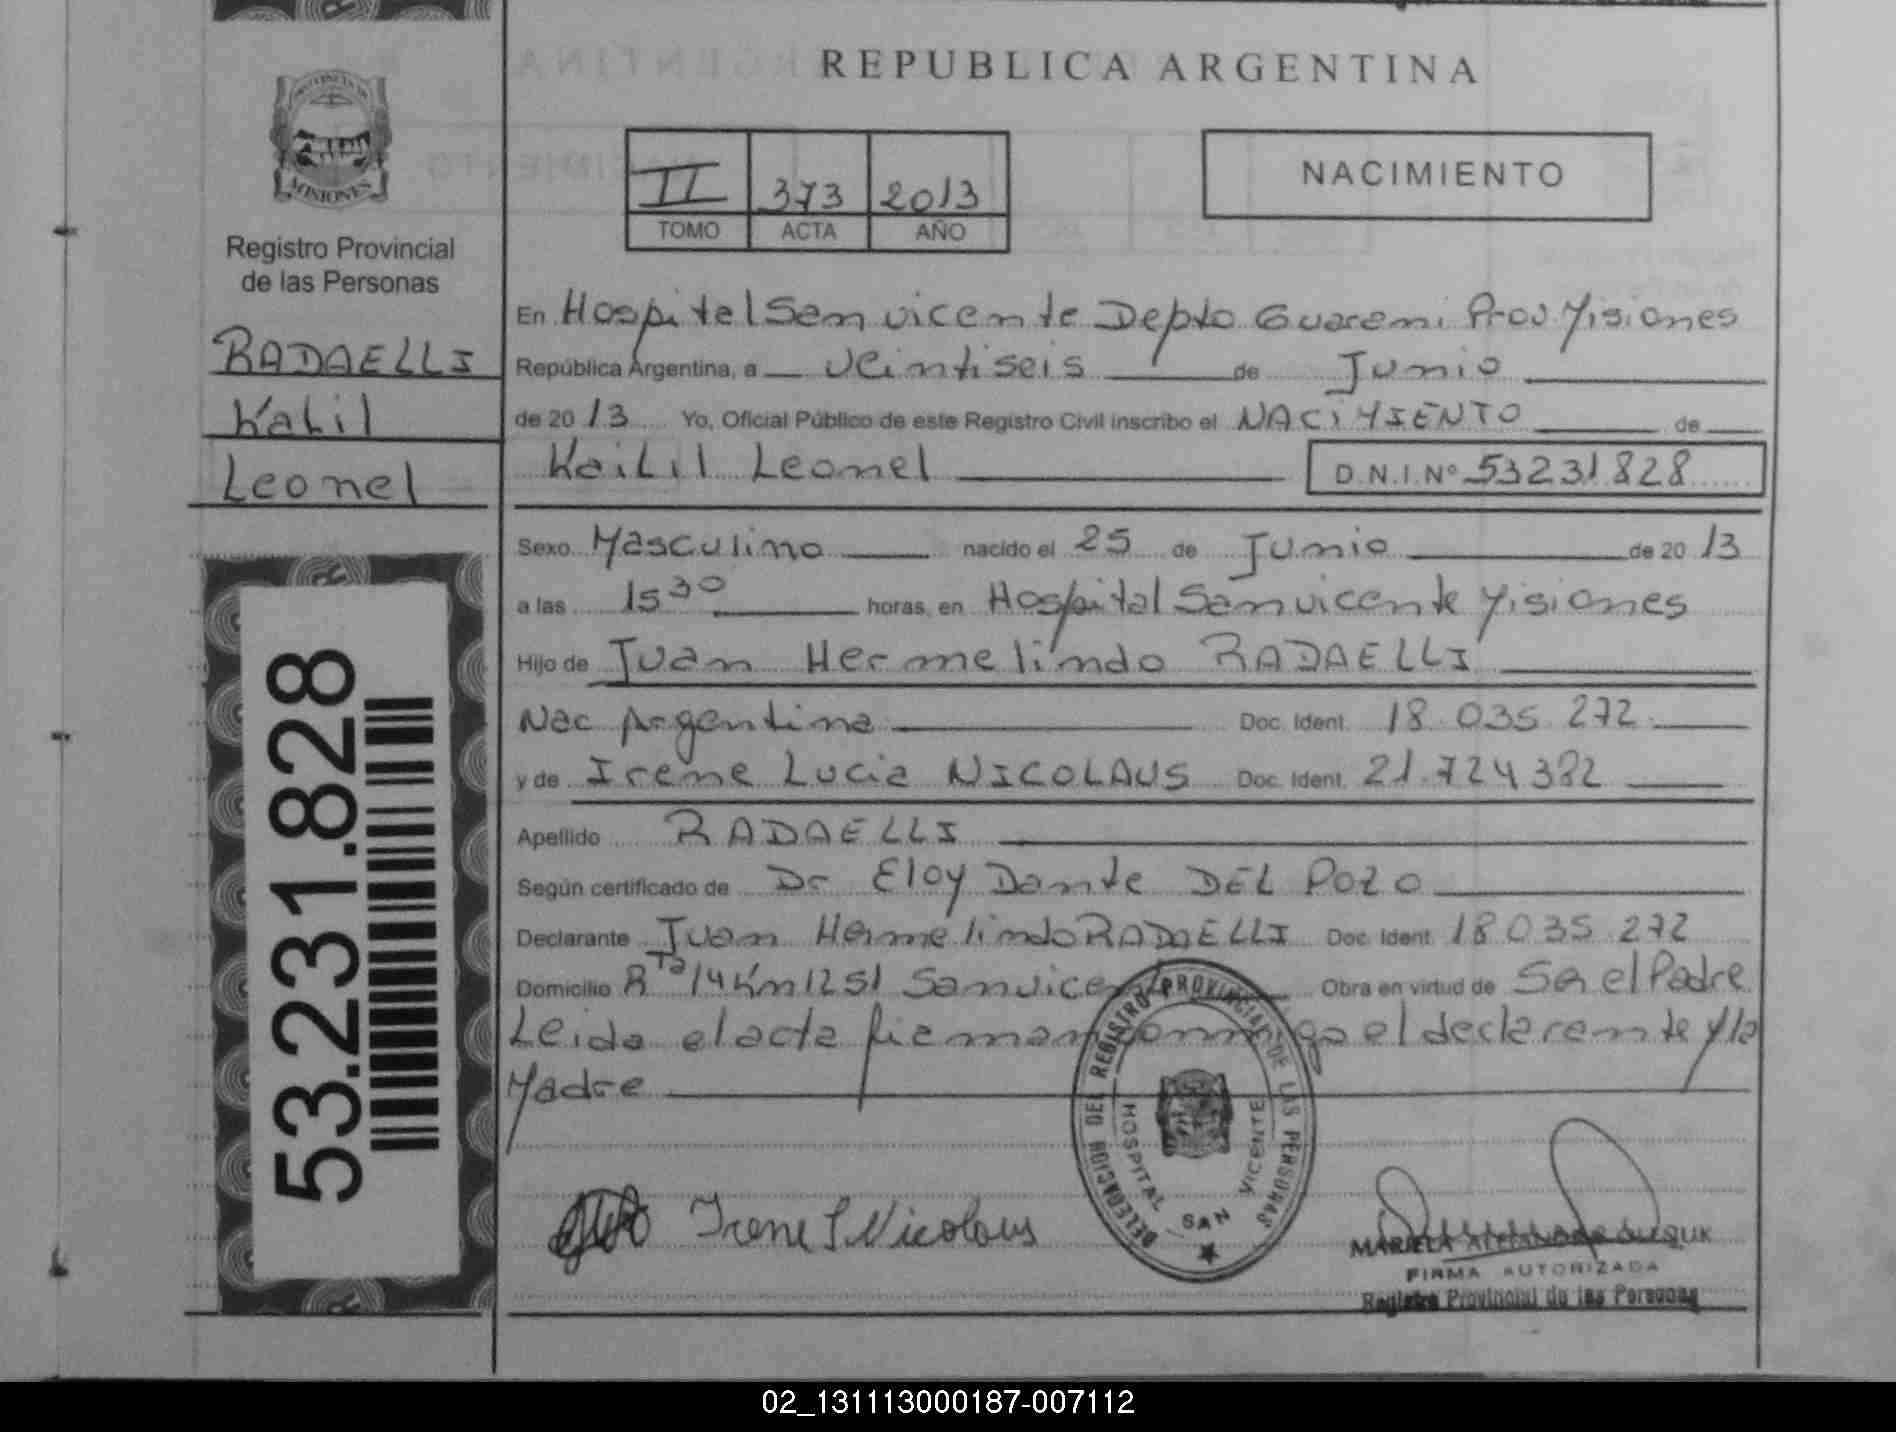 REPUBLICA ARGENTINA
MISIONES
Registro Provincial
de las Personas
RADAELLI
Kalil
Leonel
53.231.828
II 373 2013
TOMO ACTA AÑO
NACIMIENTO
En Hospital San vicente Depto Guarani Prov Misiones
República Argentina, a veintiseis de Junio
de 2013 Yo, Oficial Público de este Registro Civil inscribo el NACIMIENTO de
Leonel D.N.I.Nº 53231828
Sexo Masculino nacido el 25 de Junio de 2013
a las 15 30 horas, en Hospital San vicente Misiones
Hijo de Juan Hermelindo RADAELLI
Nac Argentina Doc. Ident. 18.035.272
y de Irene Lucia NICOLAUS Doc. Ident. 21.724.382
Apellido RADAELLI
Según certificado de Dr Eloy Dante DEL POZO
Declarante Juan Hermelindo RADAELLI Doc. Ident. 18.035.272
Domicilio Rta 14 Km 1251 San vicente Obra en virtud de Ser el Padre
Leida el acta firman conmigo el declarante y la
Madre
DELEGACION DEL REGISTRO PROVINCIAL DE LAS PERSONAS
HOSPITAL SAN VICENTE
Irene L Nicolaus
MARIELA
FIRMA AUTORIZADA
Registro Provincial de las Personas
02_131113000187-007112